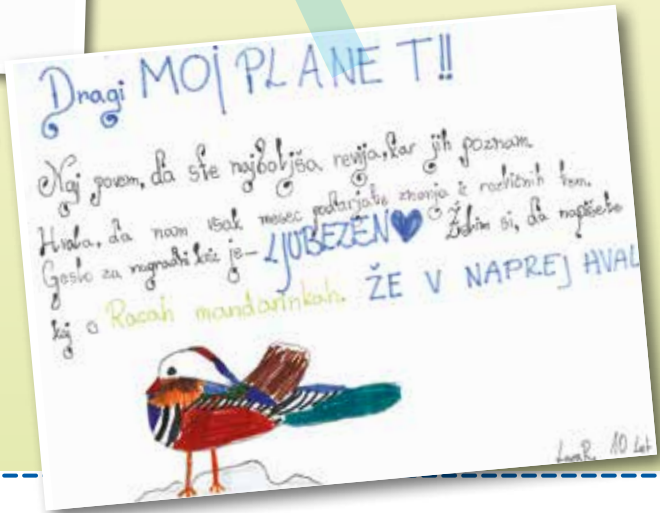 Dragi MOJ PLANET!!
Naj povem, da ste najboljša revija, kar jih poznam.
Hvala, da nam vsak mesec podarjate znanja iz različnih tem.
Geslo za nagradni kviz je - LJUBEZEN Želim si, da napišete
kaj o Racah mandarinkah. ŽE V NAPREJ HVAL
10 let